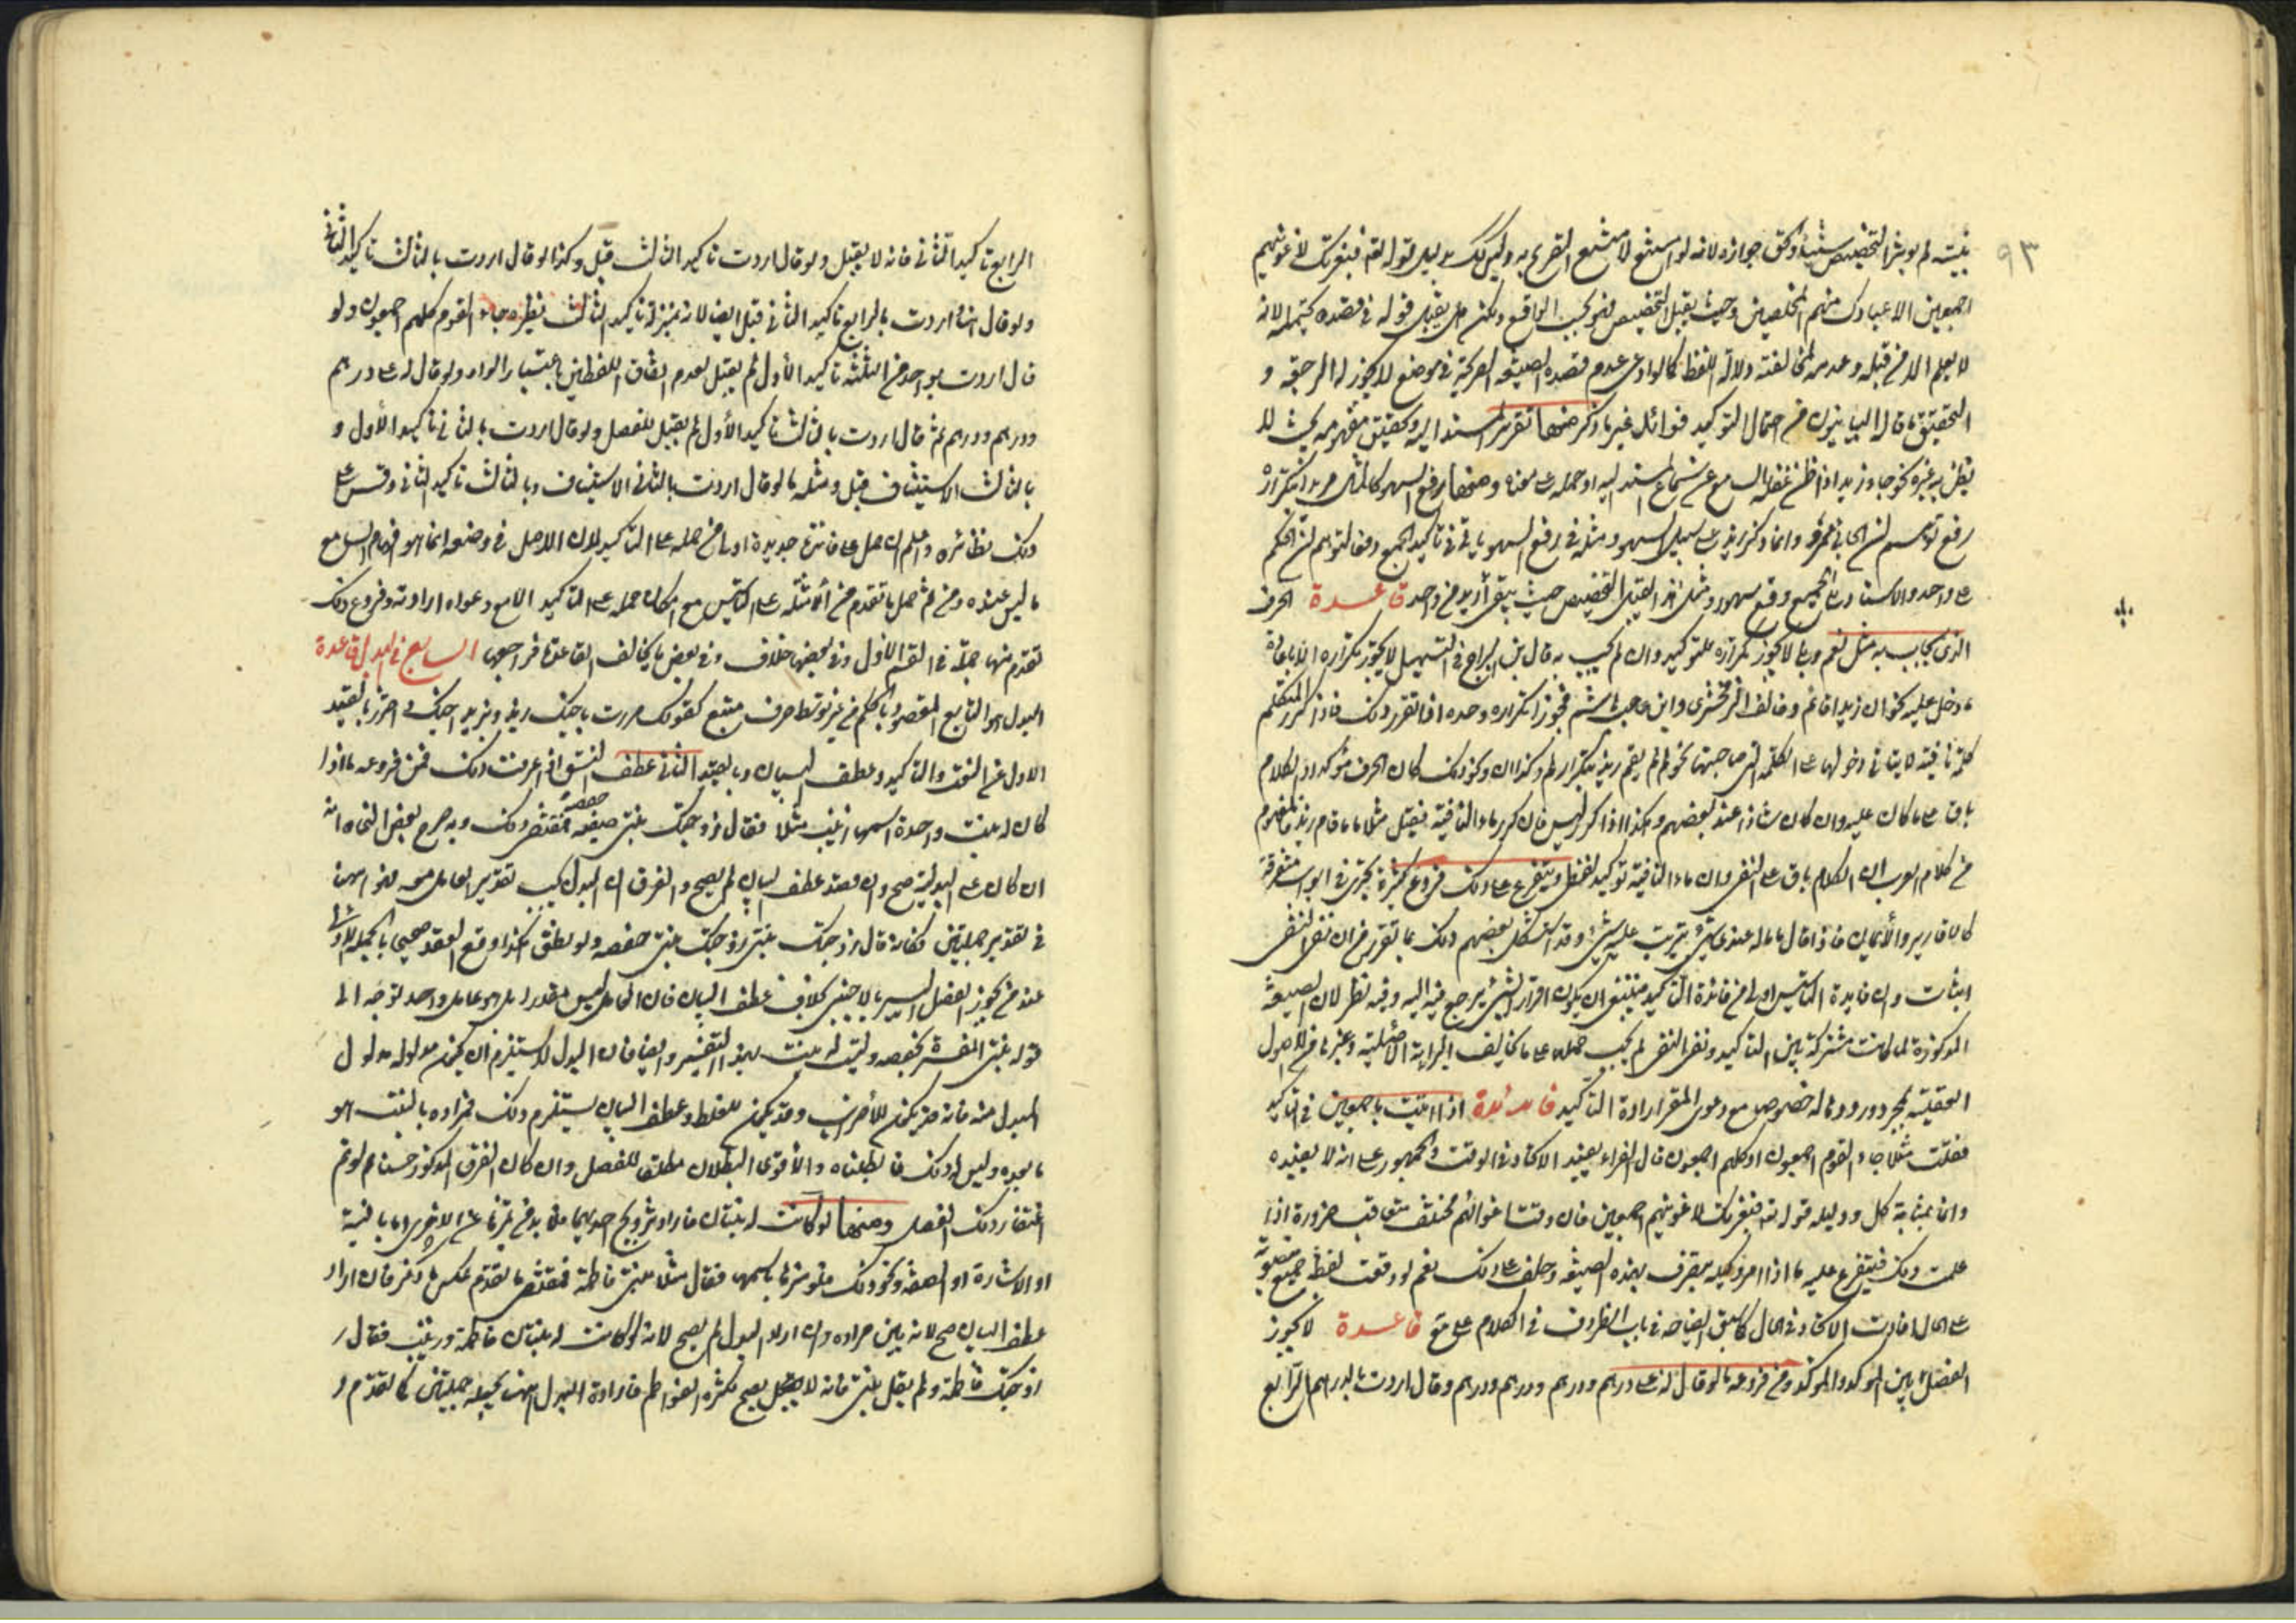 ٩٣
بنيته لم يؤثر التخصيص شيئا ولكن جوازه لانه لو امتنع لامتنع التصريح به وليس كذلك بدليل قوله تعه فبعزتك لاغوينهم
اجمعين الا عبادك منهم المخلصين وحيث يقبل التخصيص فهو بحسب الواقع ولكن هل يقبل قوله في قصده يحتمله لانه
لا يعلم الا من قبله وعدمه لمخالفته دلالة اللفظ كما لو ادعى عدم قصده الصيغه الصريحة في موضع لا يجوز له الرجعة و
التحقيق ما قاله البيانيون من احتمال التوكيد فوائد غير ما ذكر منها تقرير المسند اليه وتحقيق مفهومه بحيث لا
يظن به غيره نحو جاء زيد اذا ظن غفلة السامع عن سماع المسند اليه او حمله على معناه ومنها رفع السهو كالمثال مريدا بتكراره
رفع توهم ان الجائي عمرو وانما ذكر زيد على سبيل السهو ومثله في رفع السهو ياتي في تاكيد الجمع دفعا لتوهم ان الحكم
على واحد والاسناد الى الجميع وقع سهوا ومثل هذا لا يقبل التخصيص حيث يبقى أزيد من واحد قاعدة الحرف
الذي يجاب به مثل نعم وبلى لا يجوز تكراره للتوكيد وان لم يجب به قال ابن السراج في التسهيل لا يجوز تكراره الا باعادة
ما دخل عليه نحو ان زيدا قائم وخالف الزمخشري وابن هشام فجوزا تكراره وحده اذا تقرر ذلك فاذا كرر المتكلم
كلمة نافية لا ينافي دخولها على الكلمة التي صاحبتها نحو لم لم يقم زيد بتكرار لم وكذا ان ونحو ذلك كان الحرف مؤكدا والكلام
باق على ما كان عليه وان كان شاذا عند بعضهم وهكذا اذا كرر ليس فان كرر ما النافية فيقبل مثلا ما ما قام زيد فالمفهوم
من كلام العرب ان الكلام باق على النفي وان ما النافية توكيد لفظي ويتفرع على ذلك فروع كثيرة تجري في ابواب متفرقة
كالاقارير والأيمان فاذا قال ما ما له عندي شئ ترتب عليه شئ وقد استشكل بعضهم ذلك بما تقرر من ان نفي النفي
اثبات وان فايدة التاسيس اولى من فائدة التاكيد فينبغي ان يكون اقرارا بشئ يرجع فيه اليه وفيه نظر لان الصيغة
المذكورة لما كانت مشتركة بين التاكيد ونفي النفي لم يجب حملها على ما يخالف البراءة الأصلية وغيرها من الأصول
العقلية بمجرد وروده له خصوصا مع دعوى المقر ارادة التاكيد فائدة اذا اتيت باجمعين في التاكيد
فقلت مثلا جاء القوم اجمعون او كلهم اجمعون قال الفراء يفيد الاتحاد في الوقت والجمهور على انه لا يفيده
وانما بمثابة كل ودليله قوله تعه فبعزتك لاغوينهم اجمعين فان وقت اغوائهم مختلف متعاقب ضرورة اذا
علمت ذلك فيتفرع عليه ما اذا امر وكيله بتصرف بهذه الصيغه وحلف على ذلك نعم لو وقعت لفظ جميع منصوبة
على الحال افادت الاتحاد في الحال كما سبق ايضاحه في باب الظروف في الكلام على مع قاعدة لا يجوز
الفصل بين المؤكد والمؤكد ومن فروعه ما لو قال له على درهم ودرهم ودرهم ودرهم وقال اردت بالدرهم الرابع
الرابع تاكيد الثاني فانه لا يقبل ولو قال اردت تاكيد الثالث قبل وكذا لو قال اردت بالثالث تاكيد الثاني
ولو قال انما اردت بالرابع تاكيد الثاني قبل ايضا لانه بمنزلة تاكيد الثالث نظيره جاء القوم كلهم اجمعون ولو
قال اردت بواحد من الثلثه تاكيد الأول لم يقبل لعدم اتفاق اللفظين باعتبار الواو ولو قال له على درهم
ودرهم ودرهم ثم قال اردت بالثالث تاكيد الأول لم يقبل للفصل ولو قال اردت بالثاني تاكيد الأول و
بالثالث الاستيناف قبل ومثله ما لو قال اردت بالثاني الاستيناف وبالثالث تاكيد الثاني وقس على
ذلك نظائره واعلم ان الحمل على فائدة جديدة اولى من حمله على التاكيد لان الاصل في وضعه انما هو افهام السامع
ما ليس عنده ومن ثم حمل ما تقدم من الأمثلة على التاسيس مع امكان حمله على التاكيد الا مع دعواه ارادته وفروع ذلك
تقدم منها جملة في القسم الاول وفي بعضها خلاف وفي بعض ما يخالف القاعدة فراجعها السابع في البدل قاعدة
البدل هو التابع المقصود بالحكم من غير توسط حرف متبع كقولك مررت باخيك زيد وبزيد اخيك فاحترز بالقيد
الاول عن النعت والتاكيد وعطف البيان وبالقيد الثاني عطف النسق اذا عرفت ذلك فمن فروعه ما اذا
كان له بنت واحدة اسمها زينب مثلا فقال زوجتك بنتي حفصة فمقتضى ذلك وبه صرح بعض النحاة انه
ان كان على البدلية صح وان قصد عطف البيان لم يصح والفرق ان البدل يجب تقدير العامل معه فهو اسهن
في تقدير جملتين فكانه قال زوجتك بنتي زوجتك بنتي حفصه ولو نطق هكذا وقع العقد صحيحا بالجملة الاولى
عند من يجوز الفصل اليسير بالاجنبي بخلاف عطف البيان فان العامل ليس مقدرا بل هو عامل واحد توجه الى
قوله بنتي المفسرة بحفصه وليت له بنت بهذا التفسير وايضا فان البدل لا يستلزم ان يكون مدلوله مدلول
المبدل منه فانه قد يكون للأضراب وقد يكون للغلط وعطف البيان يستلزم ذلك فمراده بالبنت هو
ما بعده وليس له ذلك فابطلناه والأقوى البطلان مطلقا للفصل وان كان الفرق المذكور حسنا لو تم
اغتفار ذلك الفصل ومنها لو كانت له بنتان فاراد تزويج احديهما فلا بد من تميزها عن الاخرى اما بالنية
او الاشارة او الصفة ونحو ذلك فلو ميزها باسمها فقال مثلا بنتي فاطمة فمقتضى ما تقدم عكس ما ذكر فان اراد
عطف البيان صح لانه بين مراده وان اراد البدل لم يصح لانه لو كانت له بنتان فاطمة وزينب فقال ز
زوجتك فاطمة ولم يقل بنتي فانه لا يصح لكثرة الفواطم فارادة البدل هنا بجعله جملتين كما تقدم و